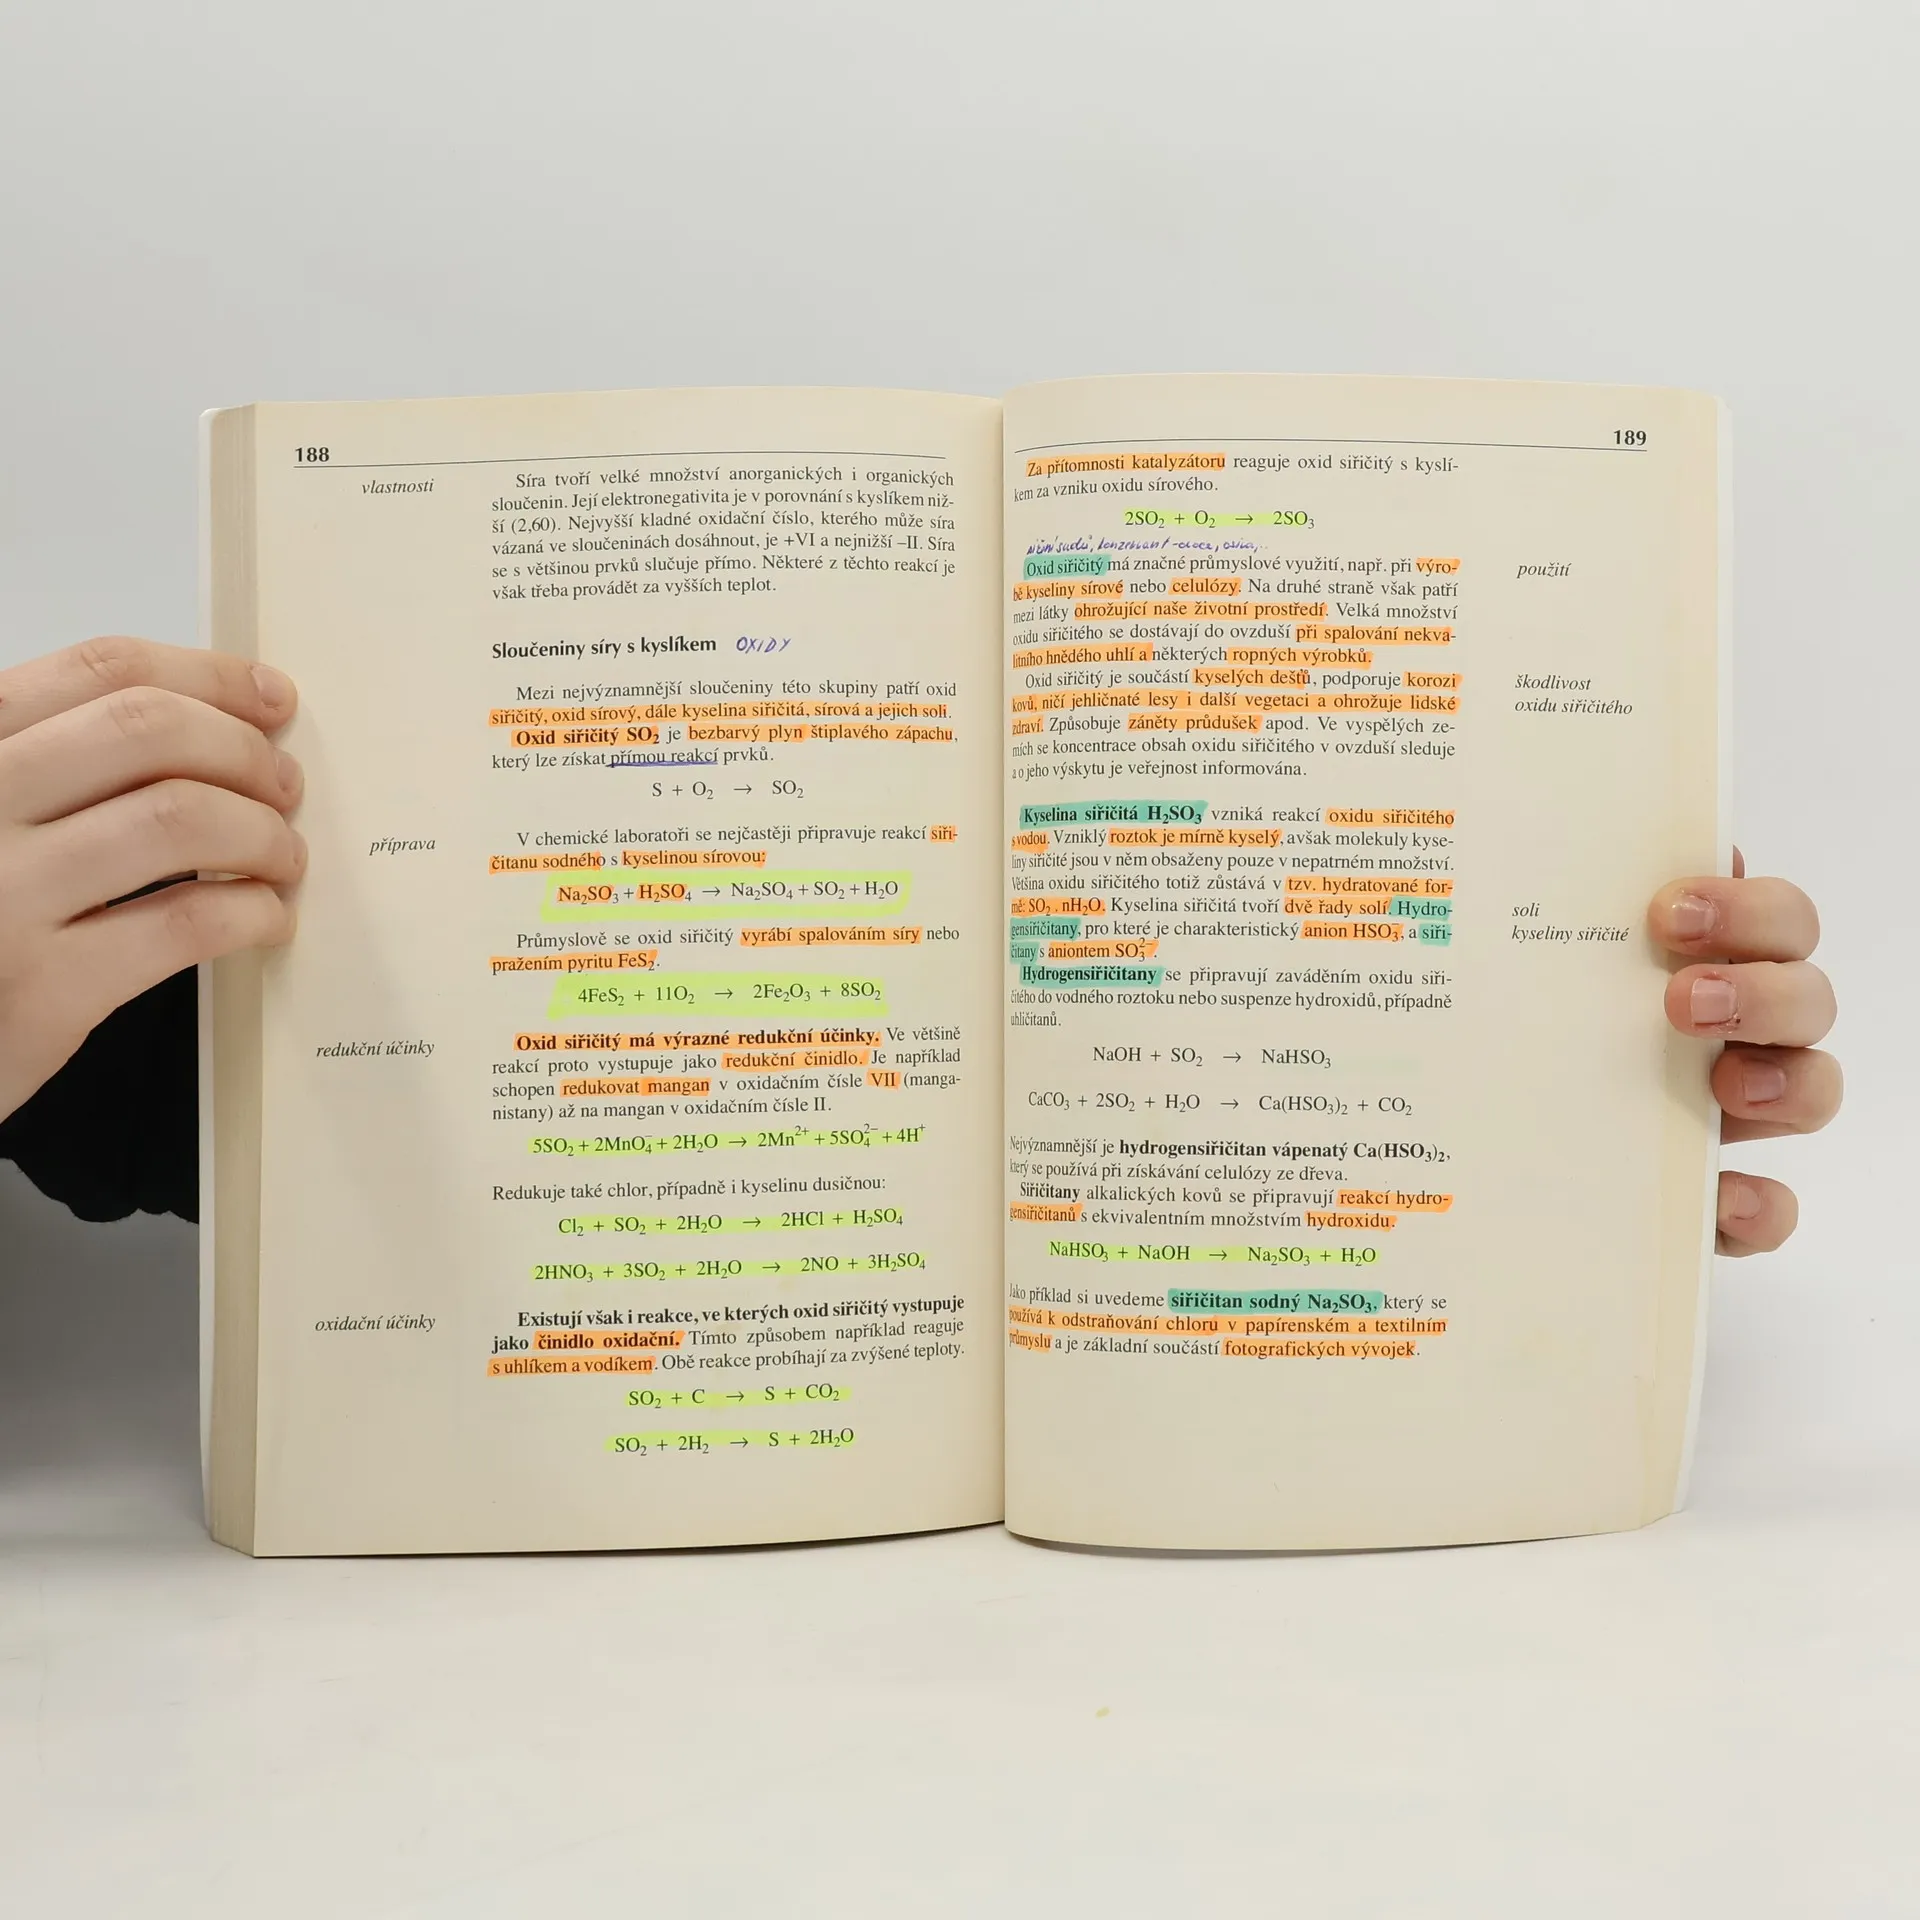 188
vlastnosti
Síra tvoří velké množství anorganických i organických
sloučenin. Její elektronegativita je v porovnání s kyslíkem niž-
ší (2,60). Nejvyšší kladné oxidační číslo, kterého může síra
vázaná ve sloučeninách dosáhnout, je +VI a nejnižší –II. Síra
se s většinou prvků slučuje přímo. Některé z těchto reakcí je
však třeba provádět za vyšších teplot.
Sloučeniny síry s kyslíkem OXIDY
Mezi nejvýznamnější sloučeniny této skupiny patří oxid
siřičitý, oxid sírový, dále kyselina siřičitá, sírová a jejich soli.
Oxid siřičitý SO₂ je bezbarvý plyn štiplavého zápachu,
který lze získat přímou reakcí prvků.
S + O₂ → SO₂
příprava
V chemické laboratoři se nejčastěji připravuje reakcí siři-
čitanu sodného s kyselinou sírovou:
Na₂SO₃ + H₂SO₄ → Na₂SO₄ + SO₂ + H₂O
Průmyslově se oxid siřičitý vyrábí spalováním síry nebo
pražením pyritu FeS₂.
4FeS₂ + 11O₂ → 2Fe₂O₃ + 8SO₂
redukční účinky
Oxid siřičitý má výrazné redukční účinky. Ve většině
reakcí proto vystupuje jako redukční činidlo. Je například
schopen redukovat mangan v oxidačním čísle VII (manga-
nistany) až na mangan v oxidačním čísle II.
5SO₂ + 2MnO₄⁻ + 2H₂O → 2Mn²⁺ + 5SO₄²⁻ + 4H⁺
Redukuje také chlor, případně i kyselinu dusičnou:
Cl₂ + SO₂ + 2H₂O → 2HCl + H₂SO₄
2HNO₃ + 3SO₂ + 2H₂O → 2NO + 3H₂SO₄
oxidační účinky
Existují však i reakce, ve kterých oxid siřičitý vystupuje
jako činidlo oxidační. Tímto způsobem například reaguje
s uhlíkem a vodíkem. Obě reakce probíhají za zvýšené teploty.
SO₂ + C → S + CO₂
SO₂ + 2H₂ → S + 2H₂O
189
Za přítomnosti katalyzátoru reaguje oxid siřičitý s kyslí-
kem za vzniku oxidu sírového.
2SO₂ + O₂ → 2SO₃
sudů, konzervant - ovoce,
Oxid siřičitý má značné průmyslové využití, např. při výro-
bě kyseliny sírové nebo celulózy. Na druhé straně však patří
mezi látky ohrožující naše životní prostředí. Velká množství
oxidu siřičitého se dostávají do ovzduší při spalování nekva-
litního hnědého uhlí a některých ropných výrobků.
použití
Oxid siřičitý je součástí kyselých dešťů, podporuje korozi
kovů, ničí jehličnaté lesy i další vegetaci a ohrožuje lidské
zdraví. Způsobuje záněty průdušek apod. Ve vyspělých ze-
mích se koncentrace obsah oxidu siřičitého v ovzduší sleduje
a o jeho výskytu je veřejnost informována.
škodlivost
oxidu siřičitého
Kyselina siřičitá H₂SO₃ vzniká reakcí oxidu siřičitého
s vodou. Vzniklý roztok je mírně kyselý, avšak molekuly kyse-
liny siřičité jsou v něm obsaženy pouze v nepatrném množství.
Většina oxidu siřičitého totiž zůstává v tzv. hydratované for-
mě: SO₂ . nH₂O. Kyselina siřičitá tvoří dvě řady solí. Hydro-
gensiřičitany, pro které je charakteristický anion HSO₃⁻, a siři-
čitany s aniontem SO₃²⁻.
soli
kyseliny siřičité
Hydrogensiřičitany se připravují zaváděním oxidu siři-
čitého do vodného roztoku nebo suspenze hydroxidů, případně
uhličitanů.
NaOH + SO₂ → NaHSO₃
CaCO₃ + 2SO₂ + H₂O → Ca(HSO₃)₂ + CO₂
Nejvýznamnější je hydrogensiřičitan vápenatý Ca(HSO₃)₂,
který se používá při získávání celulózy ze dřeva.
Siřičitany alkalických kovů se připravují reakcí hydro-
gensiřičitanů s ekvivalentním množstvím hydroxidu.
NaHSO₃ + NaOH → Na₂SO₃ + H₂O
Jako příklad si uvedeme siřičitan sodný Na₂SO₃, který se
používá k odstraňování chloru v papírenském a textilním
průmyslu a je základní součástí fotografických vývojek.